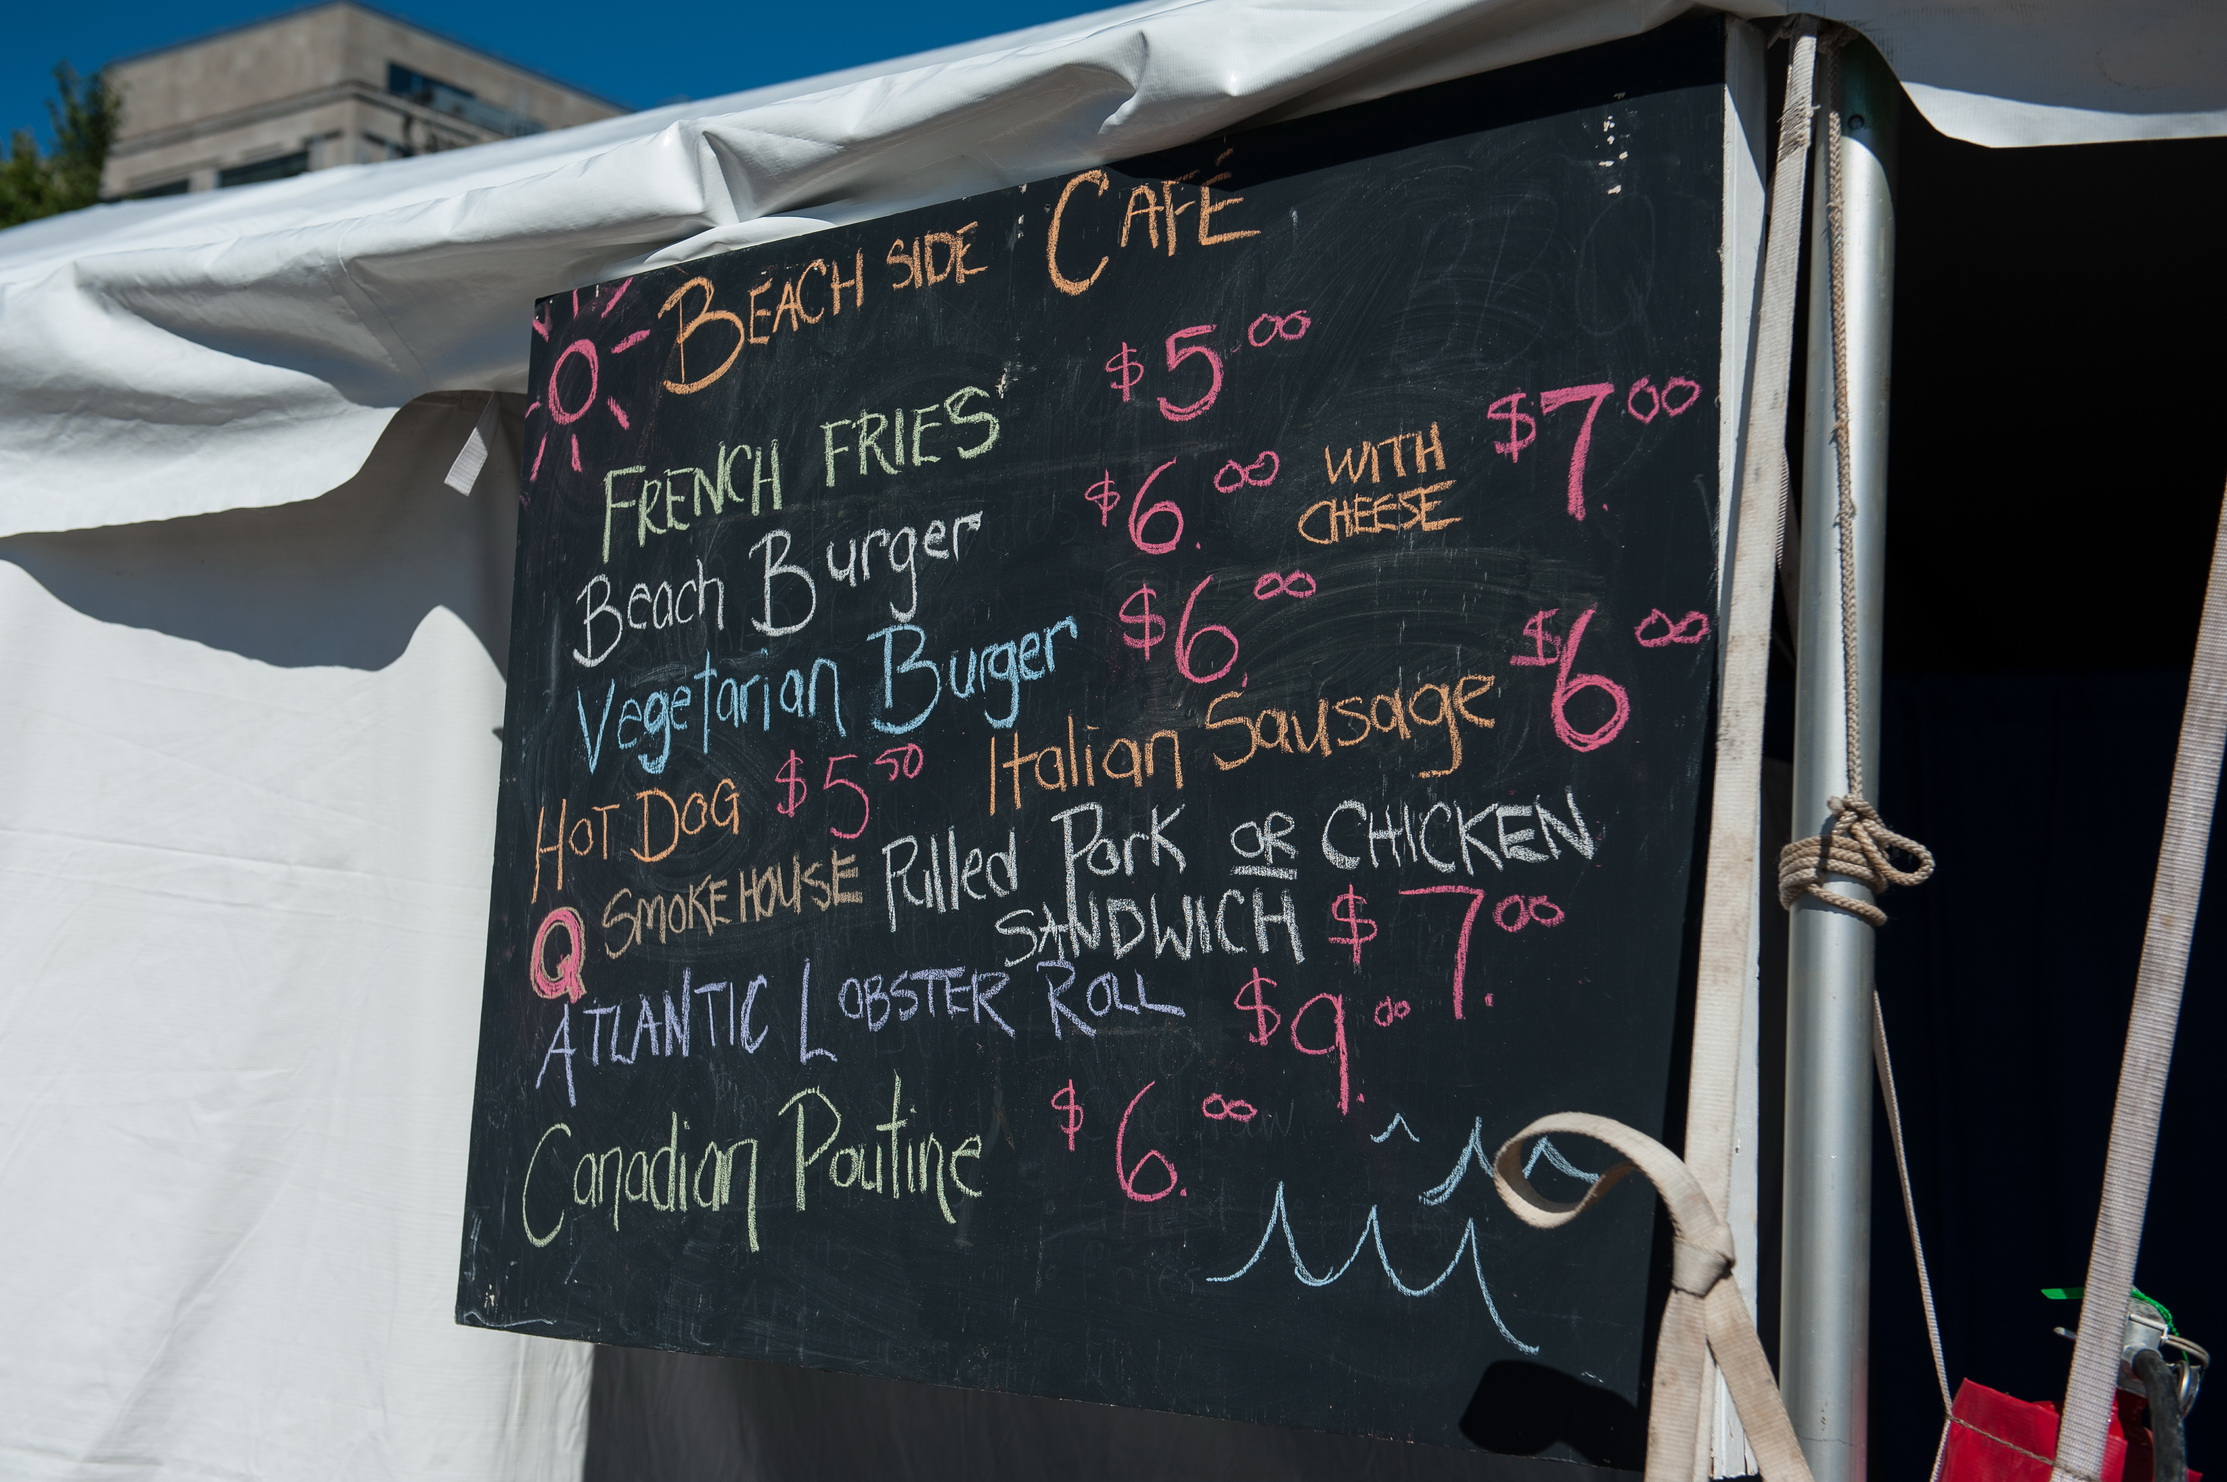 BEACH SIDE CAFÉ
FRENCH FRIES $5.00
Beach Burger $6.00 WITH CHEESE $7.00
Vegetarian Burger $6.00
HOT DOG $5.50 Italian Sausage $6.00
Q SMOKEHOUSE Pulled Pork OR CHICKEN
SANDWICH $7.00
ATLANTIC LOBSTER ROLL $9.00
Canadian Poutine $6.00